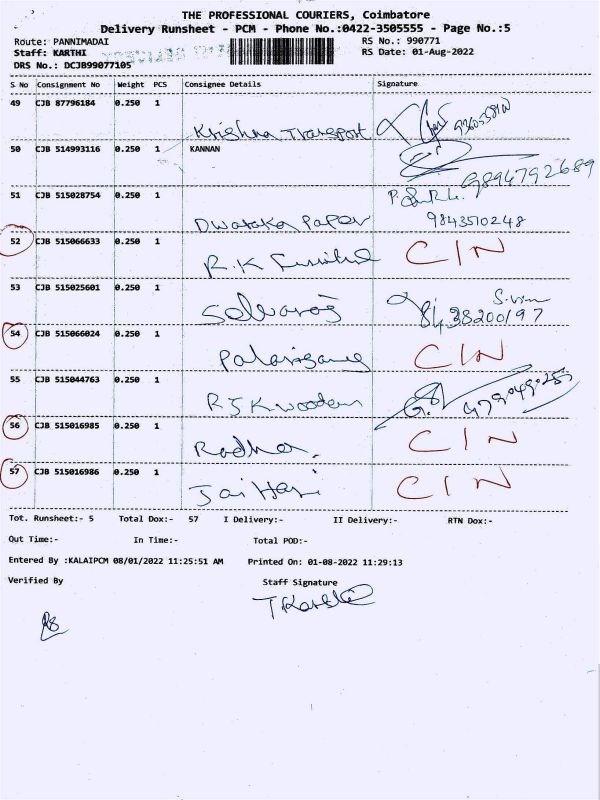 THE PROFESSIONAL COURIERS, Coimbatore
Delivery Runsheet - PCM - Phone No.:0422-3505555 - Page No.:5
Route: PANNIMADAI
RS No.: 990771
Staff: KARTHI
RS Date: 01-Aug-2022
DRS No.: DCJB99077105
S No Consignment No Weight PCS Consignee Details Signature
49 CJB 87796184 0.250 1
Krishna Transport
50 CJB 514993116 0.250 1 KANNAN
9894792689
51 CJB 515028754 0.250 1
Dwaraka Paper 9843510248
52 CJB 515066633 0.250 1 CIN
R.K
53 CJB 515025601 0.250 1
Selvaraj 8438200197
54 CJB 515066024 0.250 1 CIN
55 CJB 515044763 0.250 1
RJK wooden
56 CJB 515016985 0.250 1 CIN
Radha
57 CJB 515016986 0.250 1 CIN
Jai Hari
Tot. Runsheet:- 5 Total Dox:- 57 I Delivery:- II Delivery:- RTN Dox:-
Out Time:- In Time:- Total POD:-
Entered By :KALAIPCM 08/01/2022 11:25:51 AM Printed On: 01-08-2022 11:29:13
Verified By Staff Signature